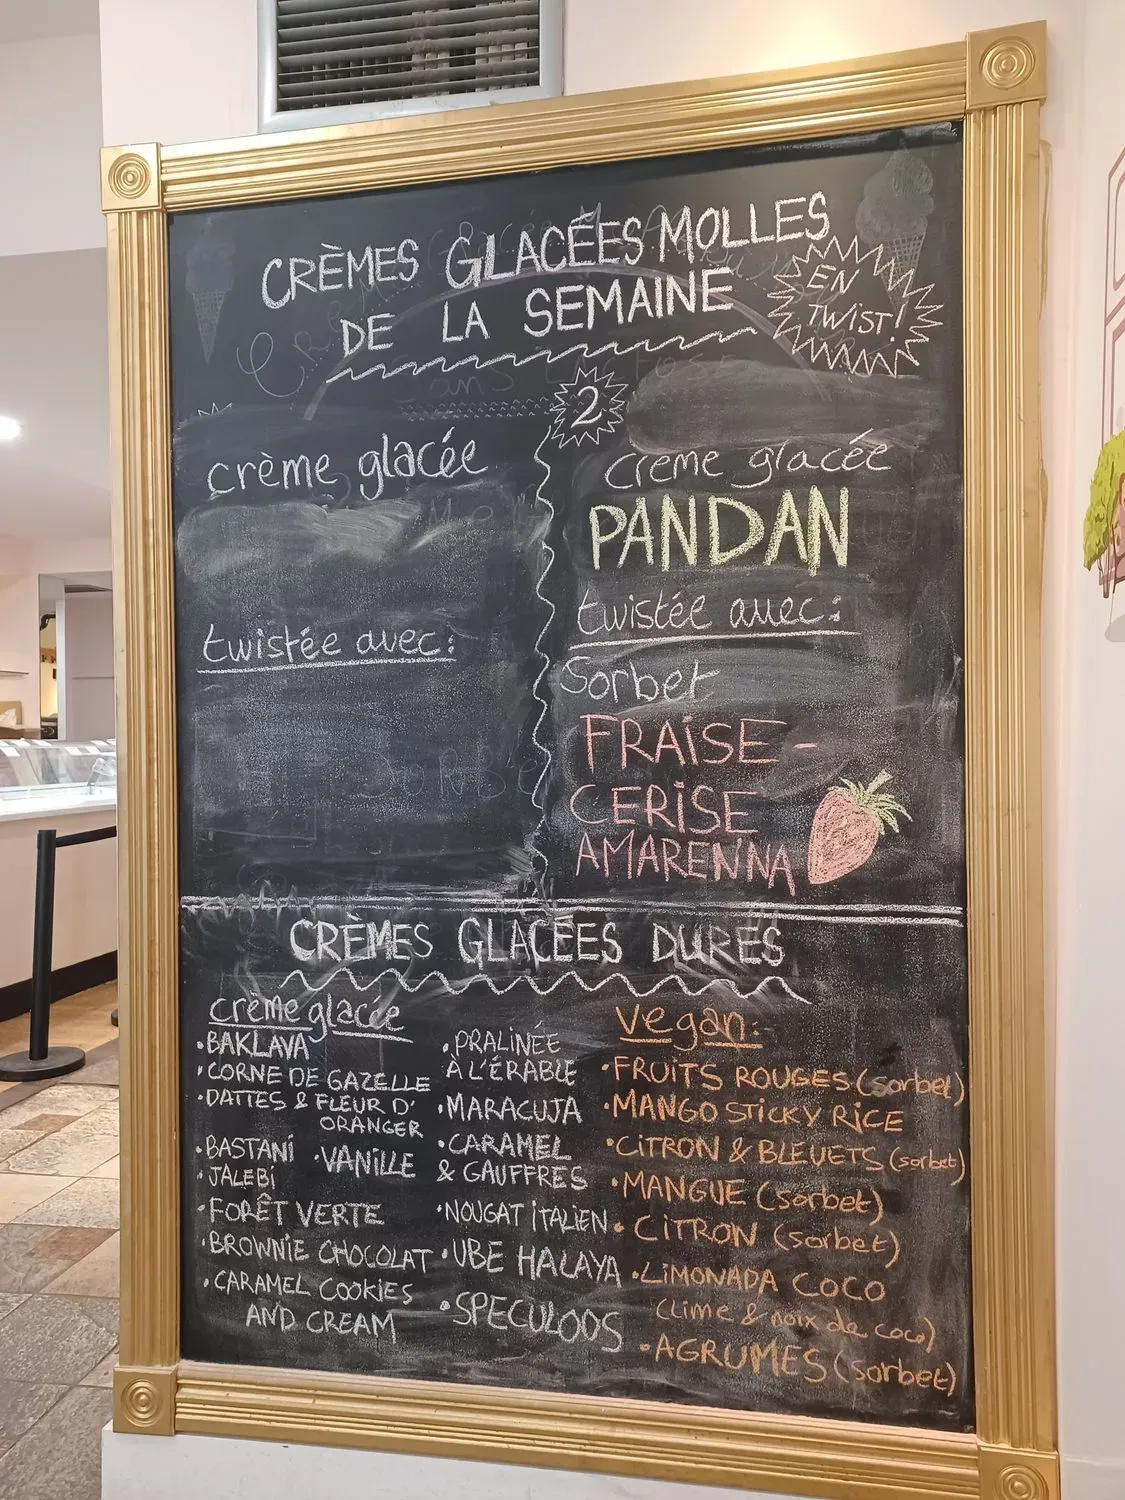 CRÈMES GLACÉES MOLLES
DE LA SEMAINE
EN
TWIST!
crème glacée
twistée avec:
2
crème glacée
PANDAN
twistée avec:
Sorbet
FRAISE -
CERISE
AMARENNA
CRÈMES GLACÉES DURES
crème glacée
•BAKLAVA
•CORNE DE GAZELLE
•DATTES & FLEUR D'
ORANGER
•BASTANI •VANILLE
•JALEBI
•FORÊT VERTE
•BROWNIE CHOCOLAT
•CARAMEL COOKIES
AND CREAM
•PRALINÉE
À L'ÉRABLE
•MARACUJA
•CARAMEL
& GAUFFRES
•NOUGAT ITALIEN
•UBE HALAYA
•SPECULOOS
vegan:
•FRUITS ROUGES (sorbet)
•MANGO STICKY RICE
•CITRON & BLEUETS (sorbet)
•MANGUE (sorbet)
•CITRON (sorbet)
•LIMONADA COCO
(lime & noix de coco)
•AGRUMES (sorbet)